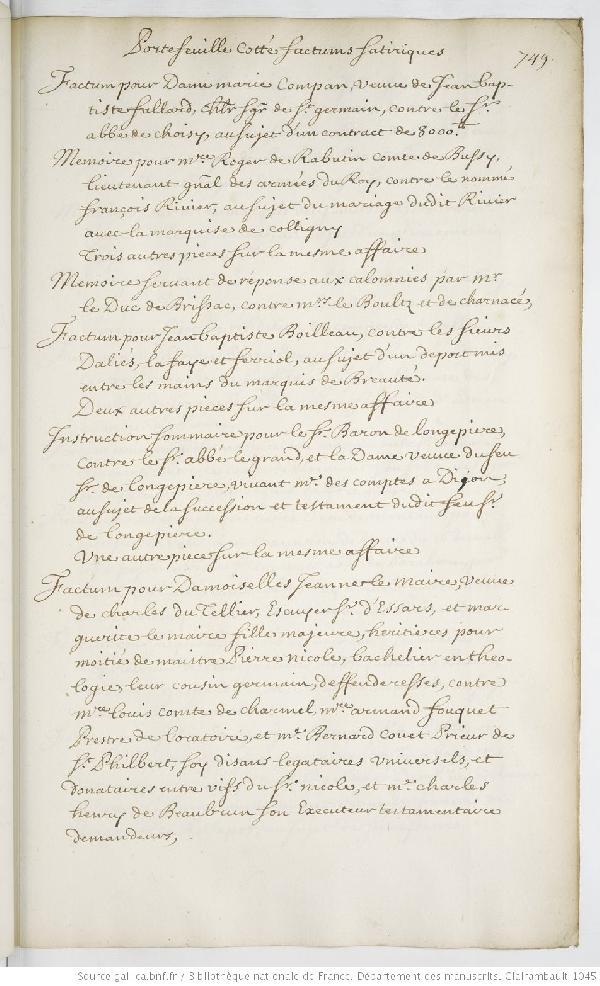 Portefeuille cotté factums satiriques
749.
Factum pour Dame marie Compan, veuve de Jean bap-
tiste fulland, chlr sgr de st. germain, contre le sr.
abbé de choisy, au sujet d'un contract de 8000.tt
Memoires pour mre. Roger de Rabutin comte de Bussy,
lieutenant gnal des armées du Roy, contre le nommé
françois Rivier, au sujet du mariage dudit Rivier
avec la marquise de colligny
Trois autres pieces sur la mesme affaire
Memoire servant de réponse aux calomnies par mr.
le Duc de Brissac, contre mrs. le Boultz et de charnacé,
Factum pour Jean baptiste Boilleau, contre les sieurs
Daliés, la faye et ferriol, au sujet d'un depost mis
entre les mains du marquis de Breauté.
Deux autres pieces sur la mesme affaire
Instruction sommaire pour le sr. Baron de longepiere,
contre le sr. abbé le grand, et la Dame veuve du feu
sr. de longepiere, vivant me. des comptes a Dijon,
au sujet de la succession et testament dudit feu sr.
de longepiere.
Une autre piece sur la mesme affaire
Factum pour Damoiselles Jeanne le maire, veuve
de charles du Tellier, Escuyer sr. d'Essars, et mar-
guerite le maire fille majeure, heritieres pour
moitié de maistre Pierre nicole, bachelier en theo-
logie, leur cousin germain, deffenderesses, contre
mre. louis comte de charmel, mre. armand fouquet
Prestre de l'oratoire, et me. Bernard Couet Prieur de
st. Philbert, soy disans legataires universels, et
donataires entre vifs du sr. nicole, et me. charles
henry de Beaubrun son Executeur testamentaire
demandeurs,
Source gallica.bnf.fr / Bibliothèque nationale de France. Département des manuscrits. Clairambault 1045